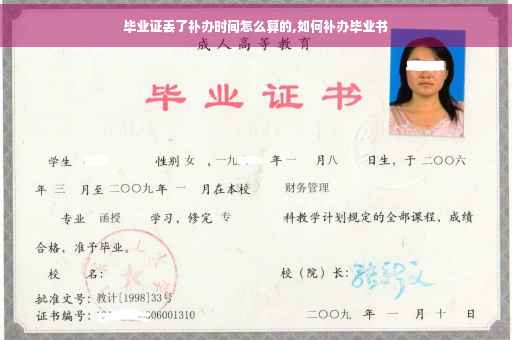 毕业证丢了补办时间怎么算的,如何补办毕业书
成人高等教育
毕业证书
学生 性别 女 ,一九 年 一 月八 日生，于 二〇〇六
年 三 月至 二〇〇九 年 一 月在本校 财务管理
专业 函授 学习，修完 专 科教学计划规定的全部课程，成绩
合格，准予毕业。
校 名： 校（院）长：
批准文号：教计[1998]33号
证书编号： 06001310 二〇〇九 年 一 月 十 日